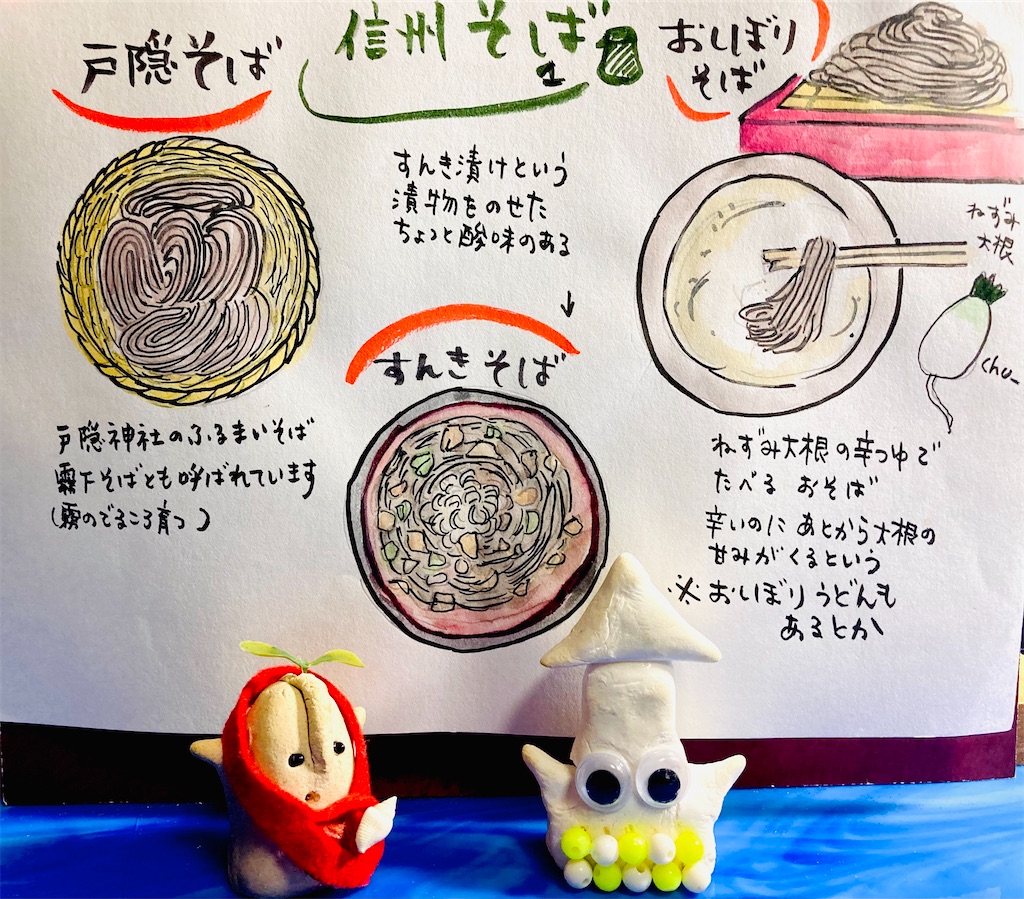 信州そば
1
戸隠そば
戸隠神社のふるまいそば
霧下そばとも呼ばれています
(霧のでるころ育つ)
すんき漬けという
漬物をのせた
ちょっと酸味のある
↓
すんきそば
おしぼり
そば
ねずみ
大根
chu_
ねずみ大根の辛つゆで
たべる おそば
辛いのに あとから大根の
甘みがくるという
※おしぼりうどんも
あるとか